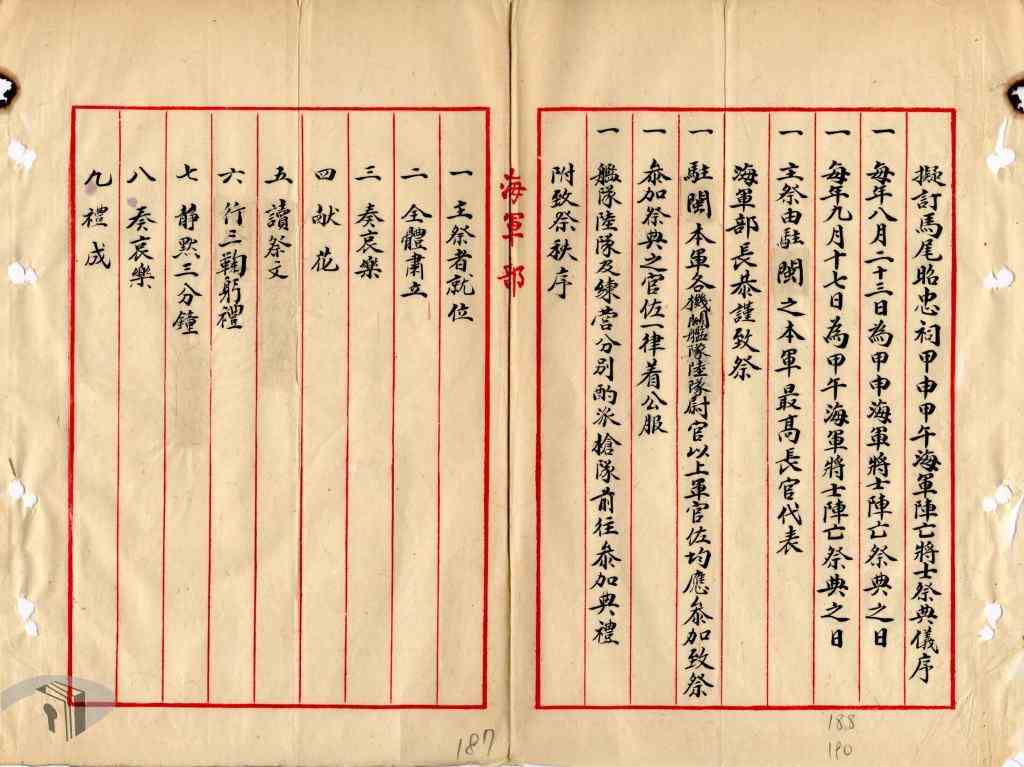 擬訂馬尾昭忠祠甲申甲午海軍陣亡將士祭典儀序
一 每年八月二十三日為甲申海軍將士陣亡祭典之日
一 每年九月十七日為甲午海軍將士陣亡祭典之日
一 主祭由駐閩之本軍最高長官代表
海軍部長恭謹致祭
一 駐閩本軍各機關艦隊陸隊尉官以上軍官佐均應參加致祭
一 參加祭典之官佐一律着公服
一 艦隊陸隊及練營分別酌派槍隊前往參加典禮
附致祭秩序
海軍部
一 主祭者就位
二 全體肅立
三 奏哀樂
四 献花
五 讀祭文
六 行三鞠躬禮
七 靜默三分鐘
八 奏哀樂
九 禮成
188
190
187